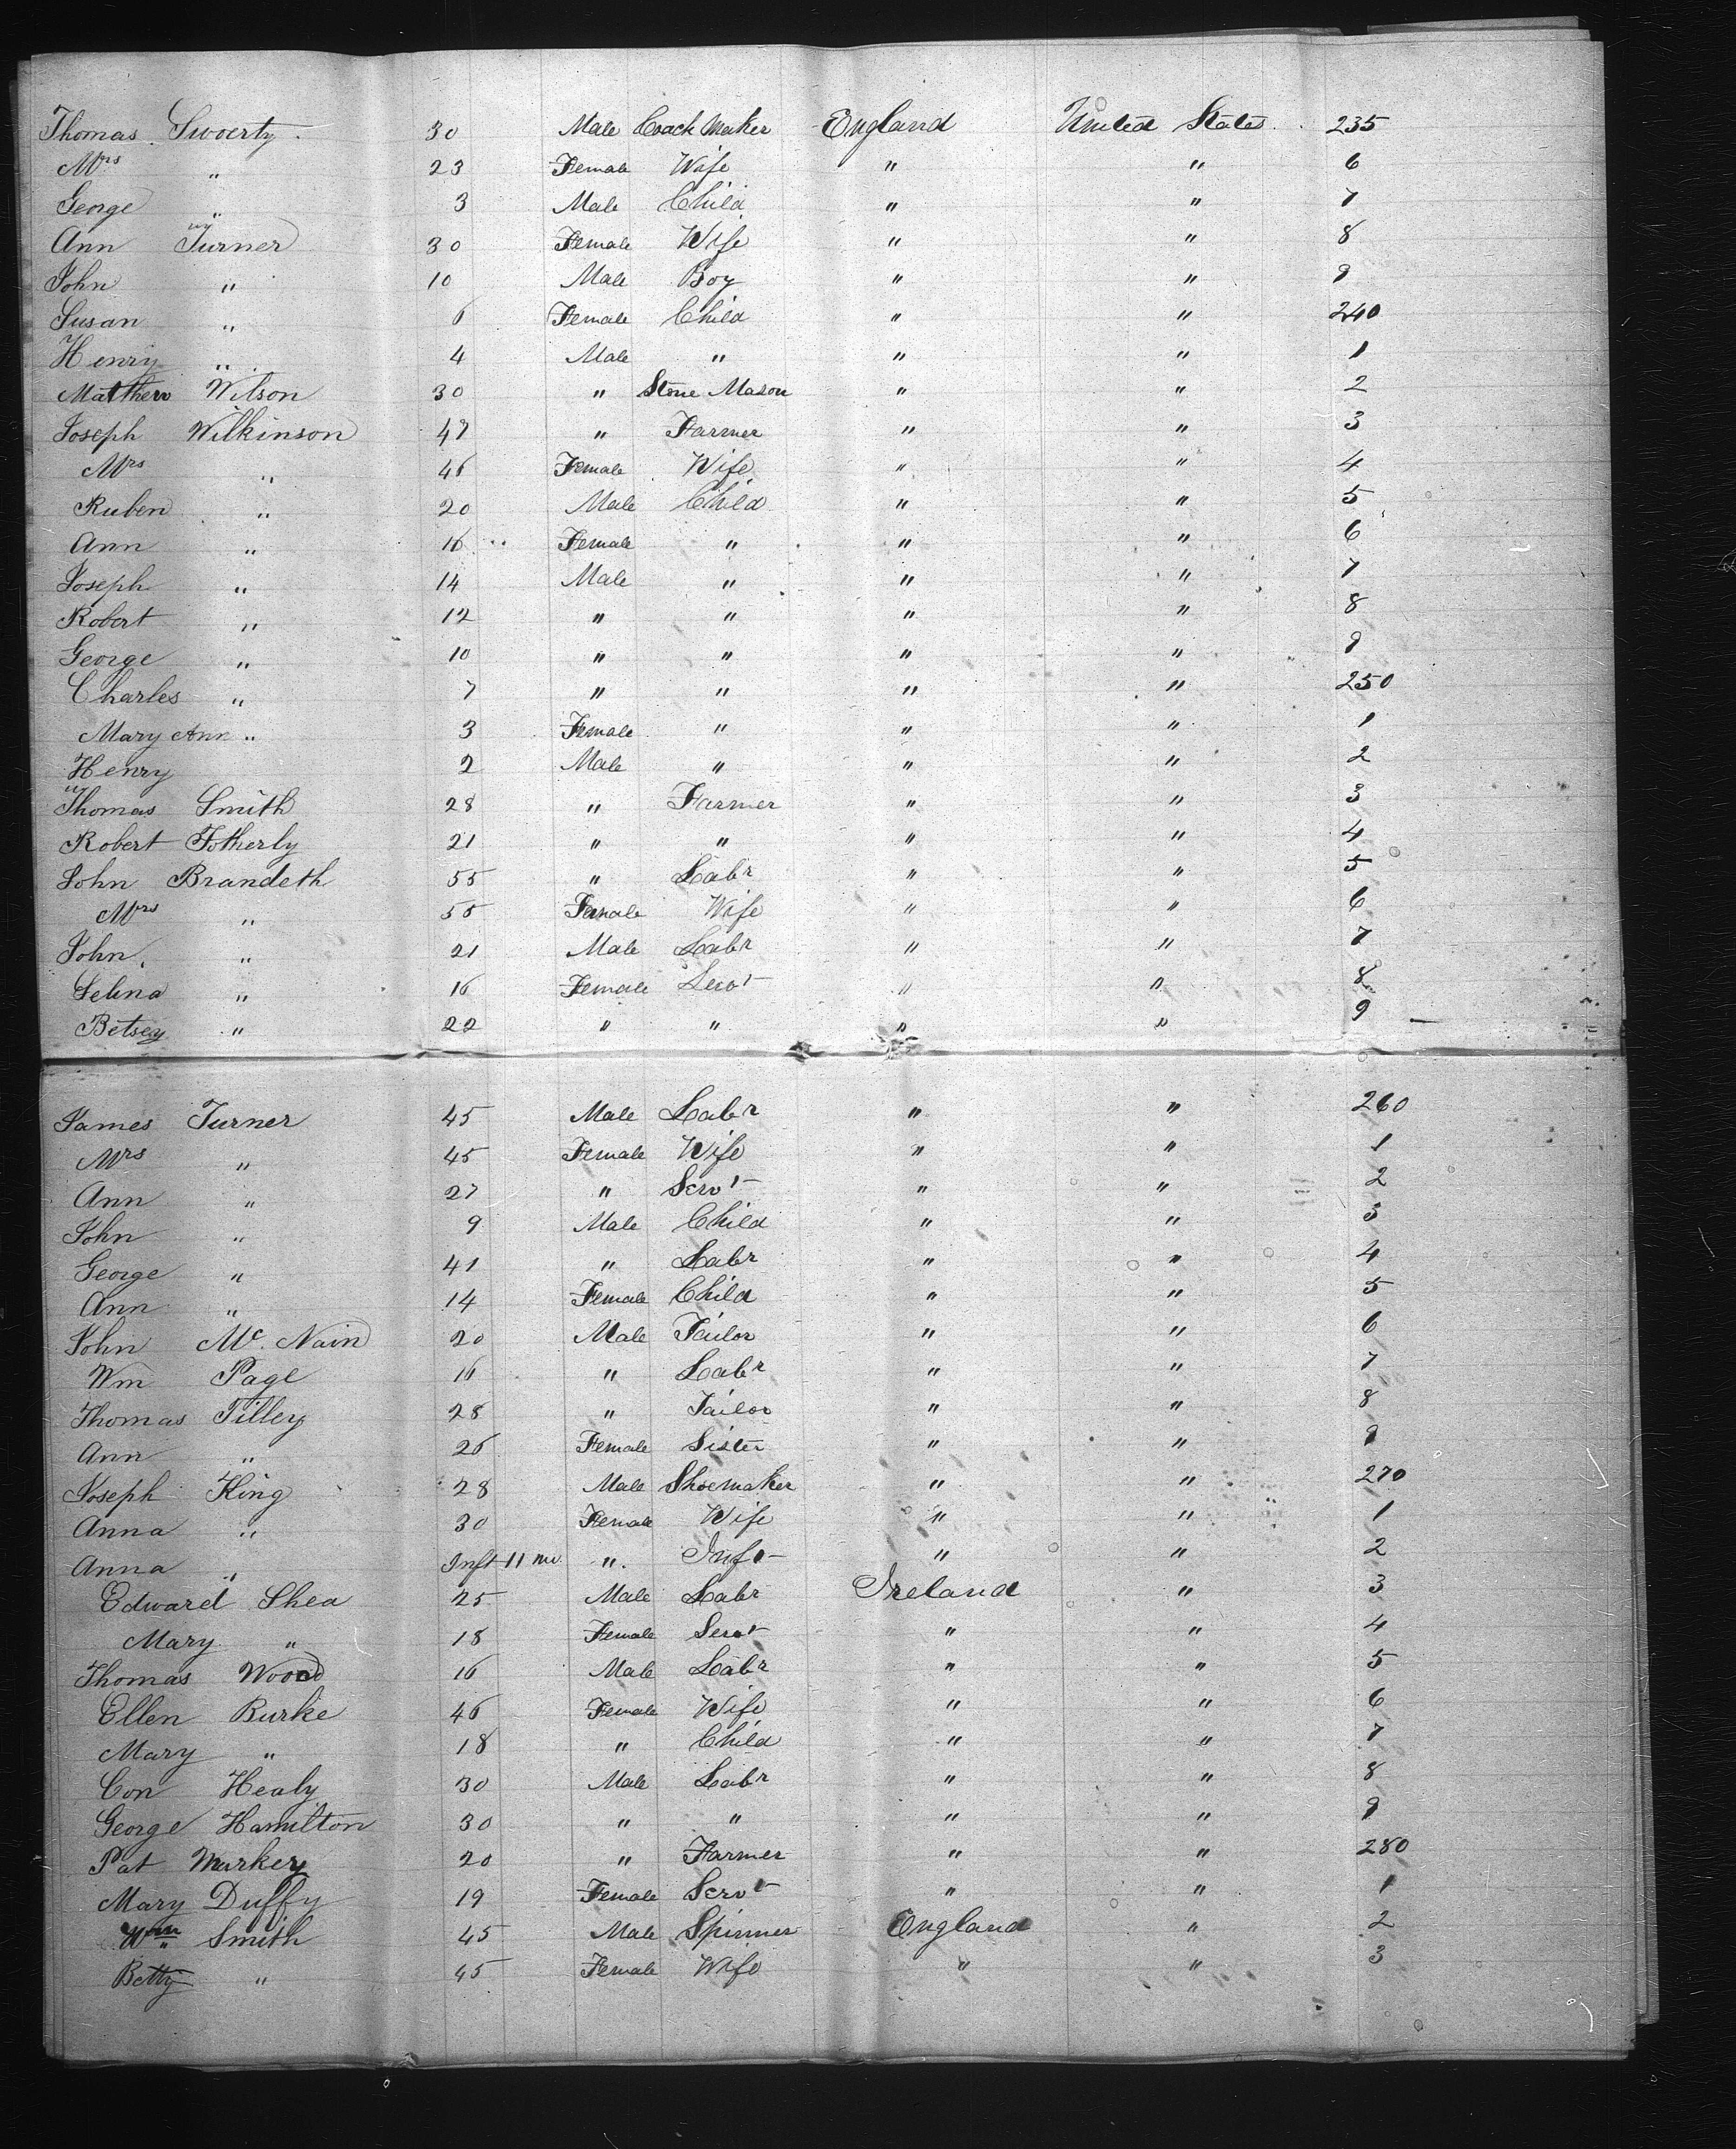 Thomas Swoerty 30 Male Coach Maker England United States 235
Mrs " 23 Female Wife " " 6
George " 3 Male Child " " 7
Ann Turner 30 Female Wife " " 8
John " 10 Male Boy " " 9
Susan " 6 Female Child " " 240
Henry " 4 Male " " " 1
Matthew Wilson 30 " Stone Mason " " 2
Joseph Wilkinson 47 " Farmer " " 3
Mrs " 46 Female Wife " " 4
Ruben " 20 Male Child " " 5
Ann " 16 Female " " " 6
Joseph " 14 Male " " " 7
Robert " 12 " " " " 8
George " 10 " " " " 9
Charles " 7 " " " " 250
Mary Ann " 3 Female " " " 1
Henry 2 Male " " " 2
Thomas Smith 28 " Farmer " " 3
Robert Fotherly 21 " " " " 4
John Brandeth 55 " Labr " " 5
Mrs " 55 Female Wife " " 6
John " 21 Male Labr " " 7
Selina " 16 Female Servt " " 8
Betsey " 22 " " " " 9
James Turner 45 Male Labr " " 260
Mrs " 45 Female Wife " " 1
Ann " 27 " Servt " " 2
John " 9 Male Child " " 3
George " 41 " Labr " " 4
Ann " 14 Female Child " " 5
John Mc. Nain 20 Male Tailor " " 6
Wm Page 16 " Labr " " 7
Thomas Tilley 28 " Tailor " " 8
Ann " 26 Female Sister " " 9
Joseph King 28 Male Shoemaker " " 270
Anna " 30 Female Wife " " 1
Anna " Inft 11 mo " Inft " " 2
Edward Shea 25 Male Labr Ireland " 3
Mary " 18 Female Servt " " 4
Thomas Wood 16 Male Labr " " 5
Ellen Burke 46 Female Wife " " 6
Mary " 18 " Child " " 7
Con Healy 30 Male Labr " " 8
George Hamilton 30 " " " " 9
Pat Markey 20 " Farmer " " 280
Mary Duffy 19 Female Servt " " 1
Wm Smith 45 Male Spinner England " 2
Betty " 45 Female Wife " " 3